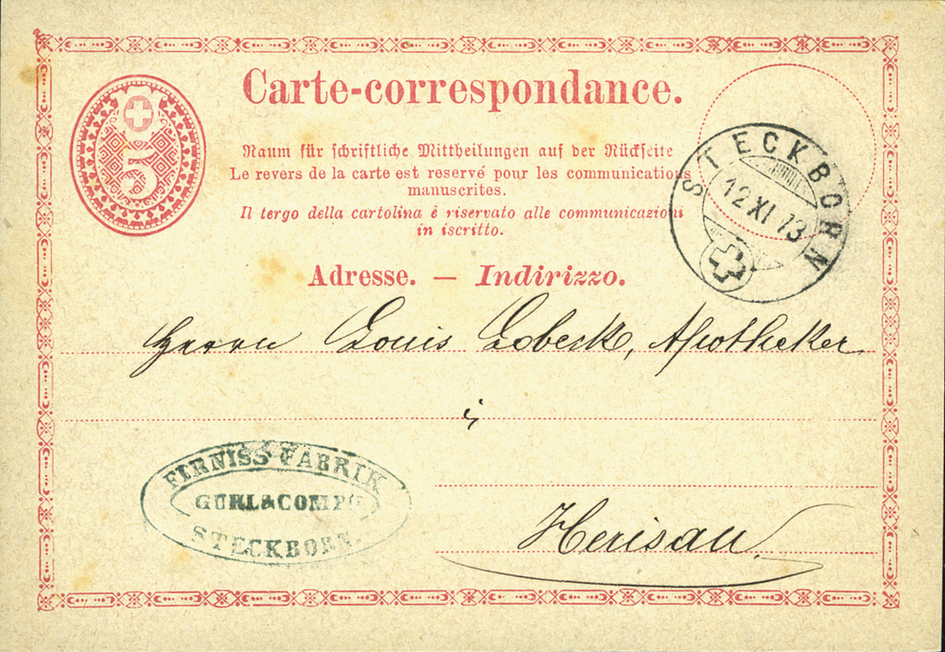 Carte-correspondance.
5
Raum für schriftliche Mittheilungen auf der Rückseite
Le revers de la carte est reservé pour les communications
manuscrites.
Il tergo della cartolina è riservato alle communicazioni
in iscritto.
STECKBORN
12 XI 73
Adresse. — Indirizzo.
Herrn Louis Lobeck, Apotheker
FIRNISS FABRIK
STECKBORN.
Herisau.